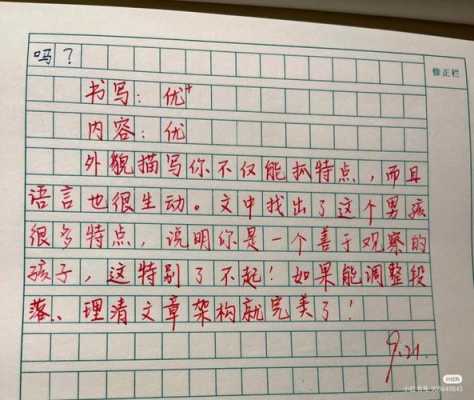 吗？
修正栏
书写：优+
内容：优
外貌描写你不仅能抓特点，而且
语言也很生动。文中找出了这个男孩
很多特点，说明你是一个善于观察的
孩子，这特别了不起！如果能调整段
落、理清文章架构就完美了！
9.21.
小红书